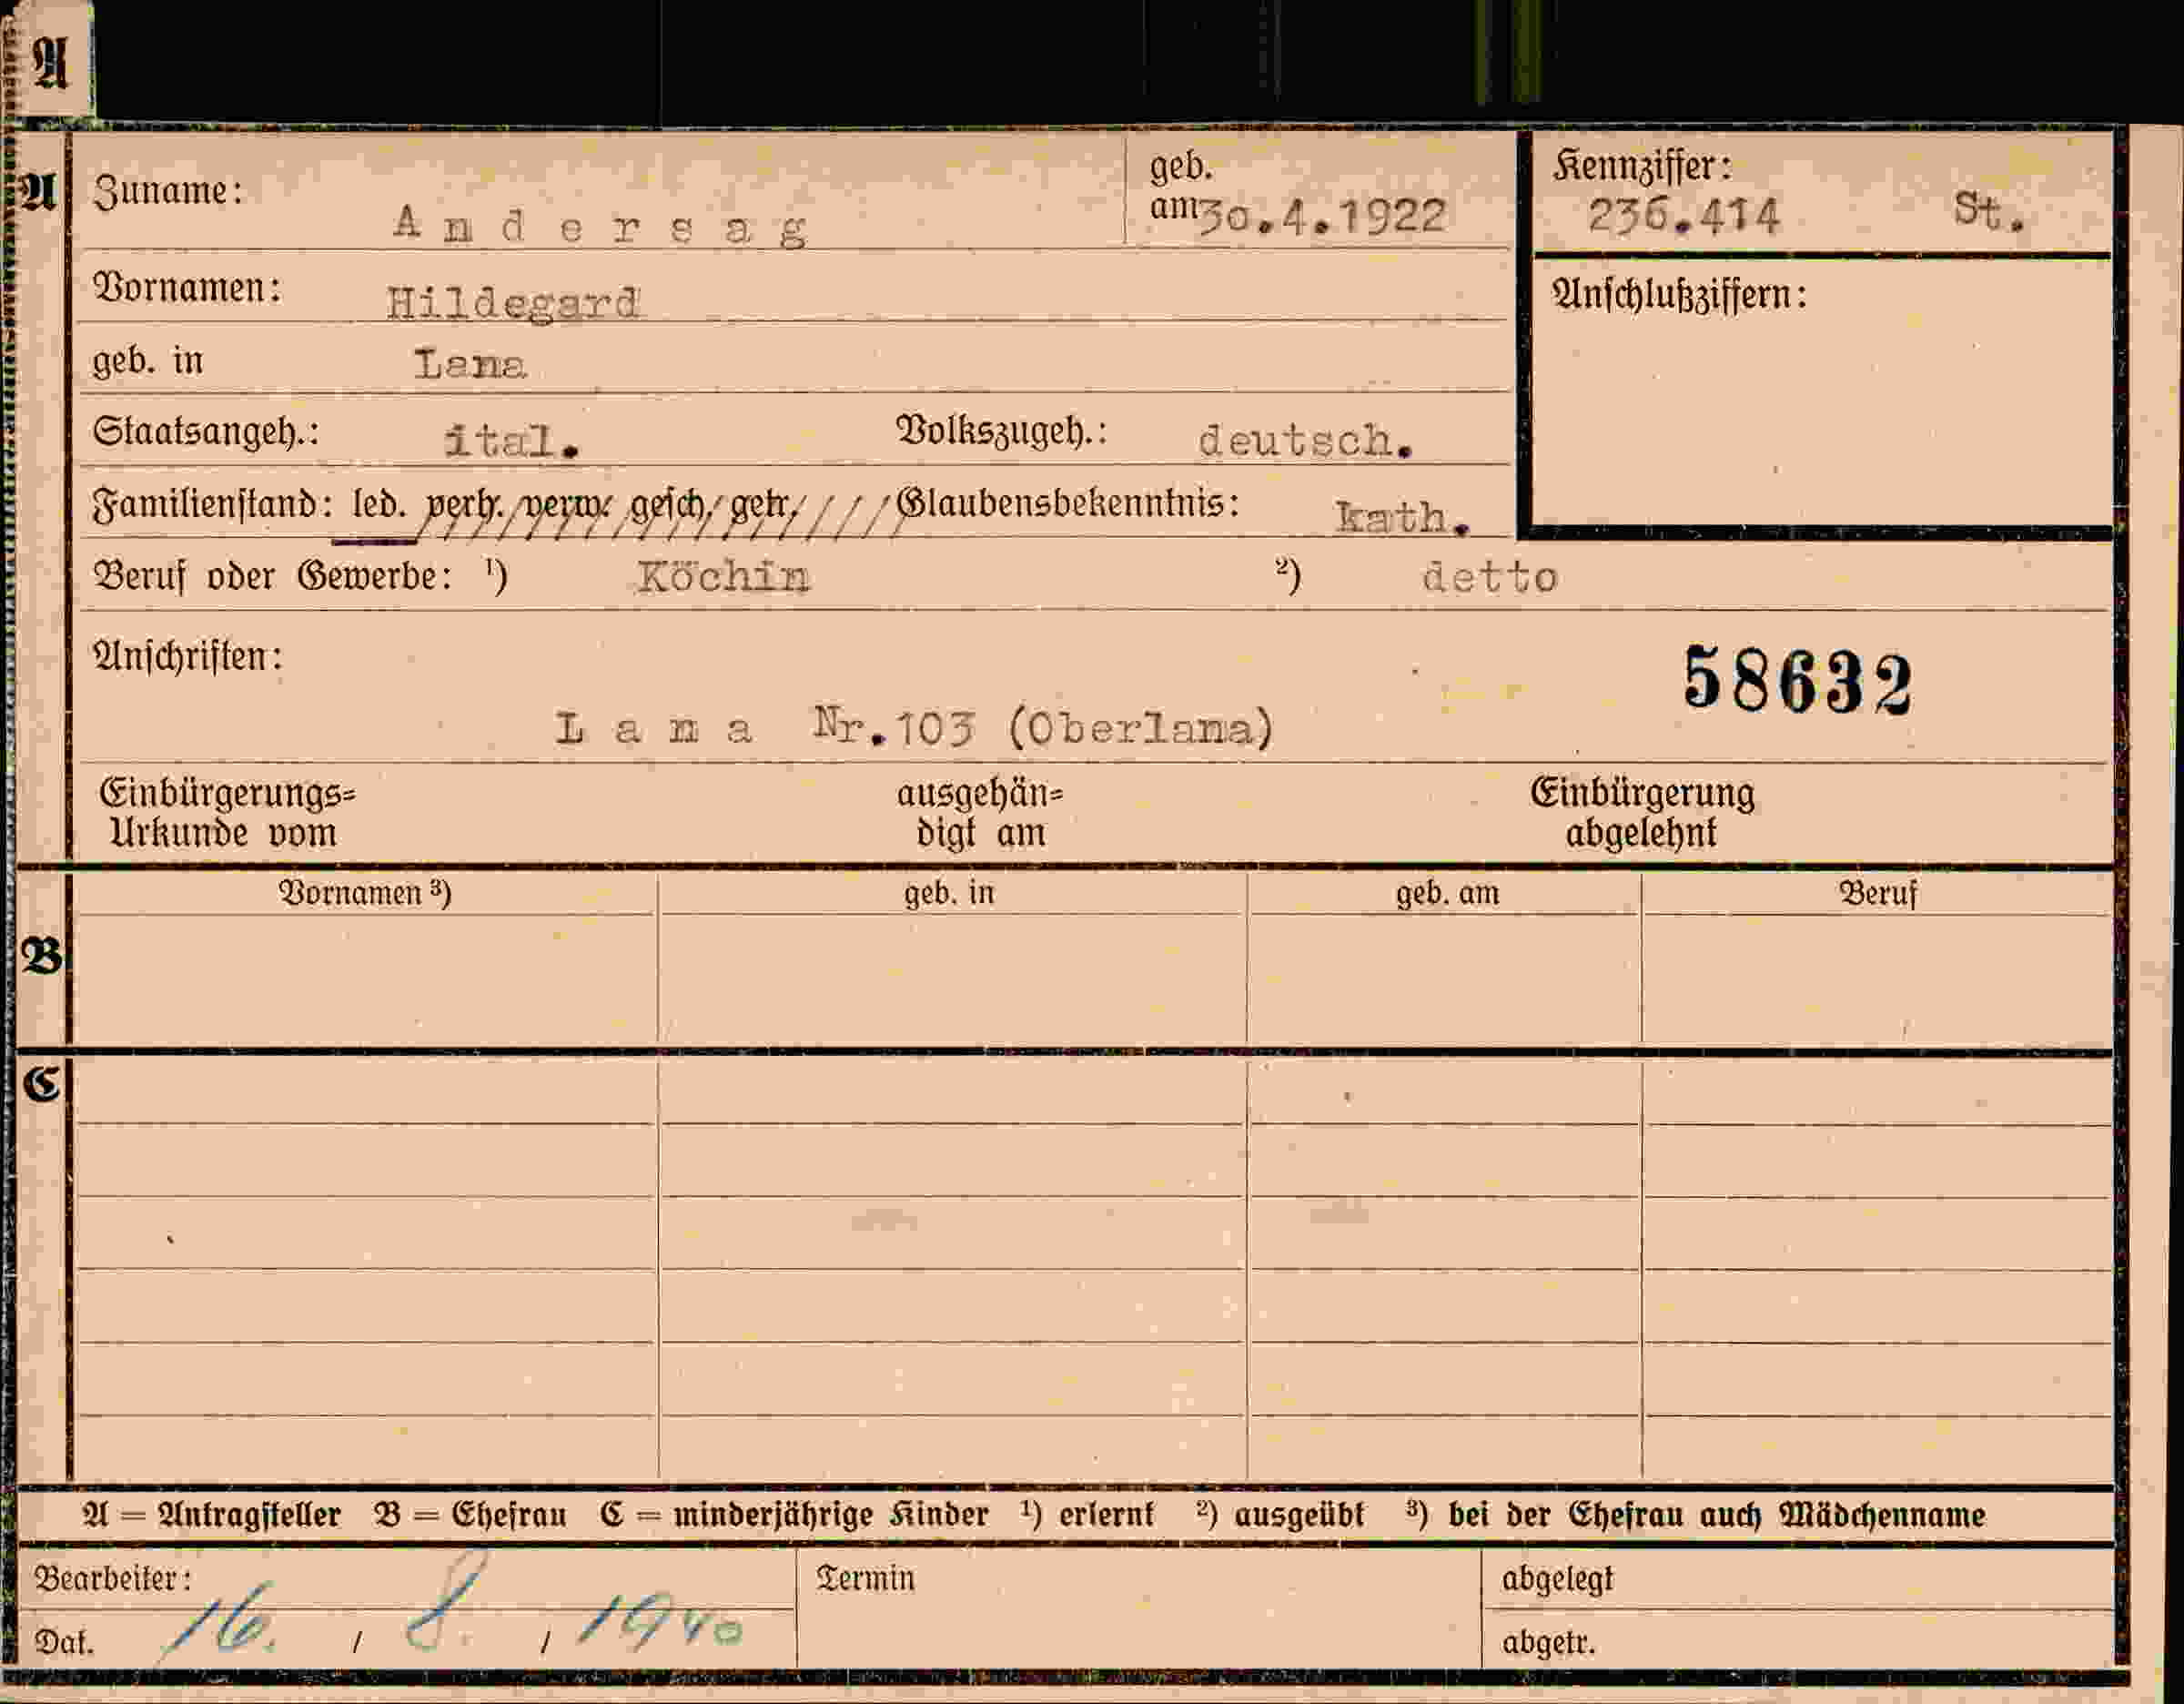 A
A
Zuname: Andersag geb. am 30.4.1922
Kennziffer: 236.414 St.
Vornamen: Hildegard
Anschlußziffern:
geb. in Lana
Staatsangeh.: ital. Volkszugeh.: deutsch.
Familienstand: led. verh. verw. gesch. getr. Glaubensbekenntnis: kath.
Beruf oder Gewerbe: ¹) Köchin ²) detto
Anschriften:
58632
Lana Nr.103 (Oberlana)
Einbürgerungs= ausgehän= Einbürgerung
Urkunde vom digt am abgelehnt
Vornamen ³) geb. in geb. am Beruf
B
C
A = Antragsteller B = Ehefrau C = minderjährige Kinder ¹) erlernt ²) ausgeübt ³) bei der Ehefrau auch Mädchenname
Bearbeiter: Termin abgelegt
Dat. 16. / 8. / 1940 abgetr.